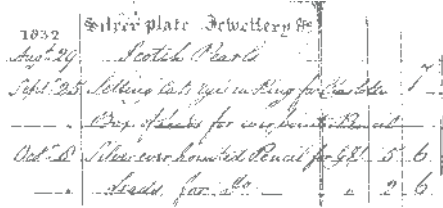 1832 Silver plate Jewellery &c
Augt 29 Scotch Pearls
Sept 25 Setting Cats eye in Ring for 7
" Box of Leads for ever Pencil
Octr 8 Silver ever pointed Pencil for 5 6
" Leads for do " 2 6